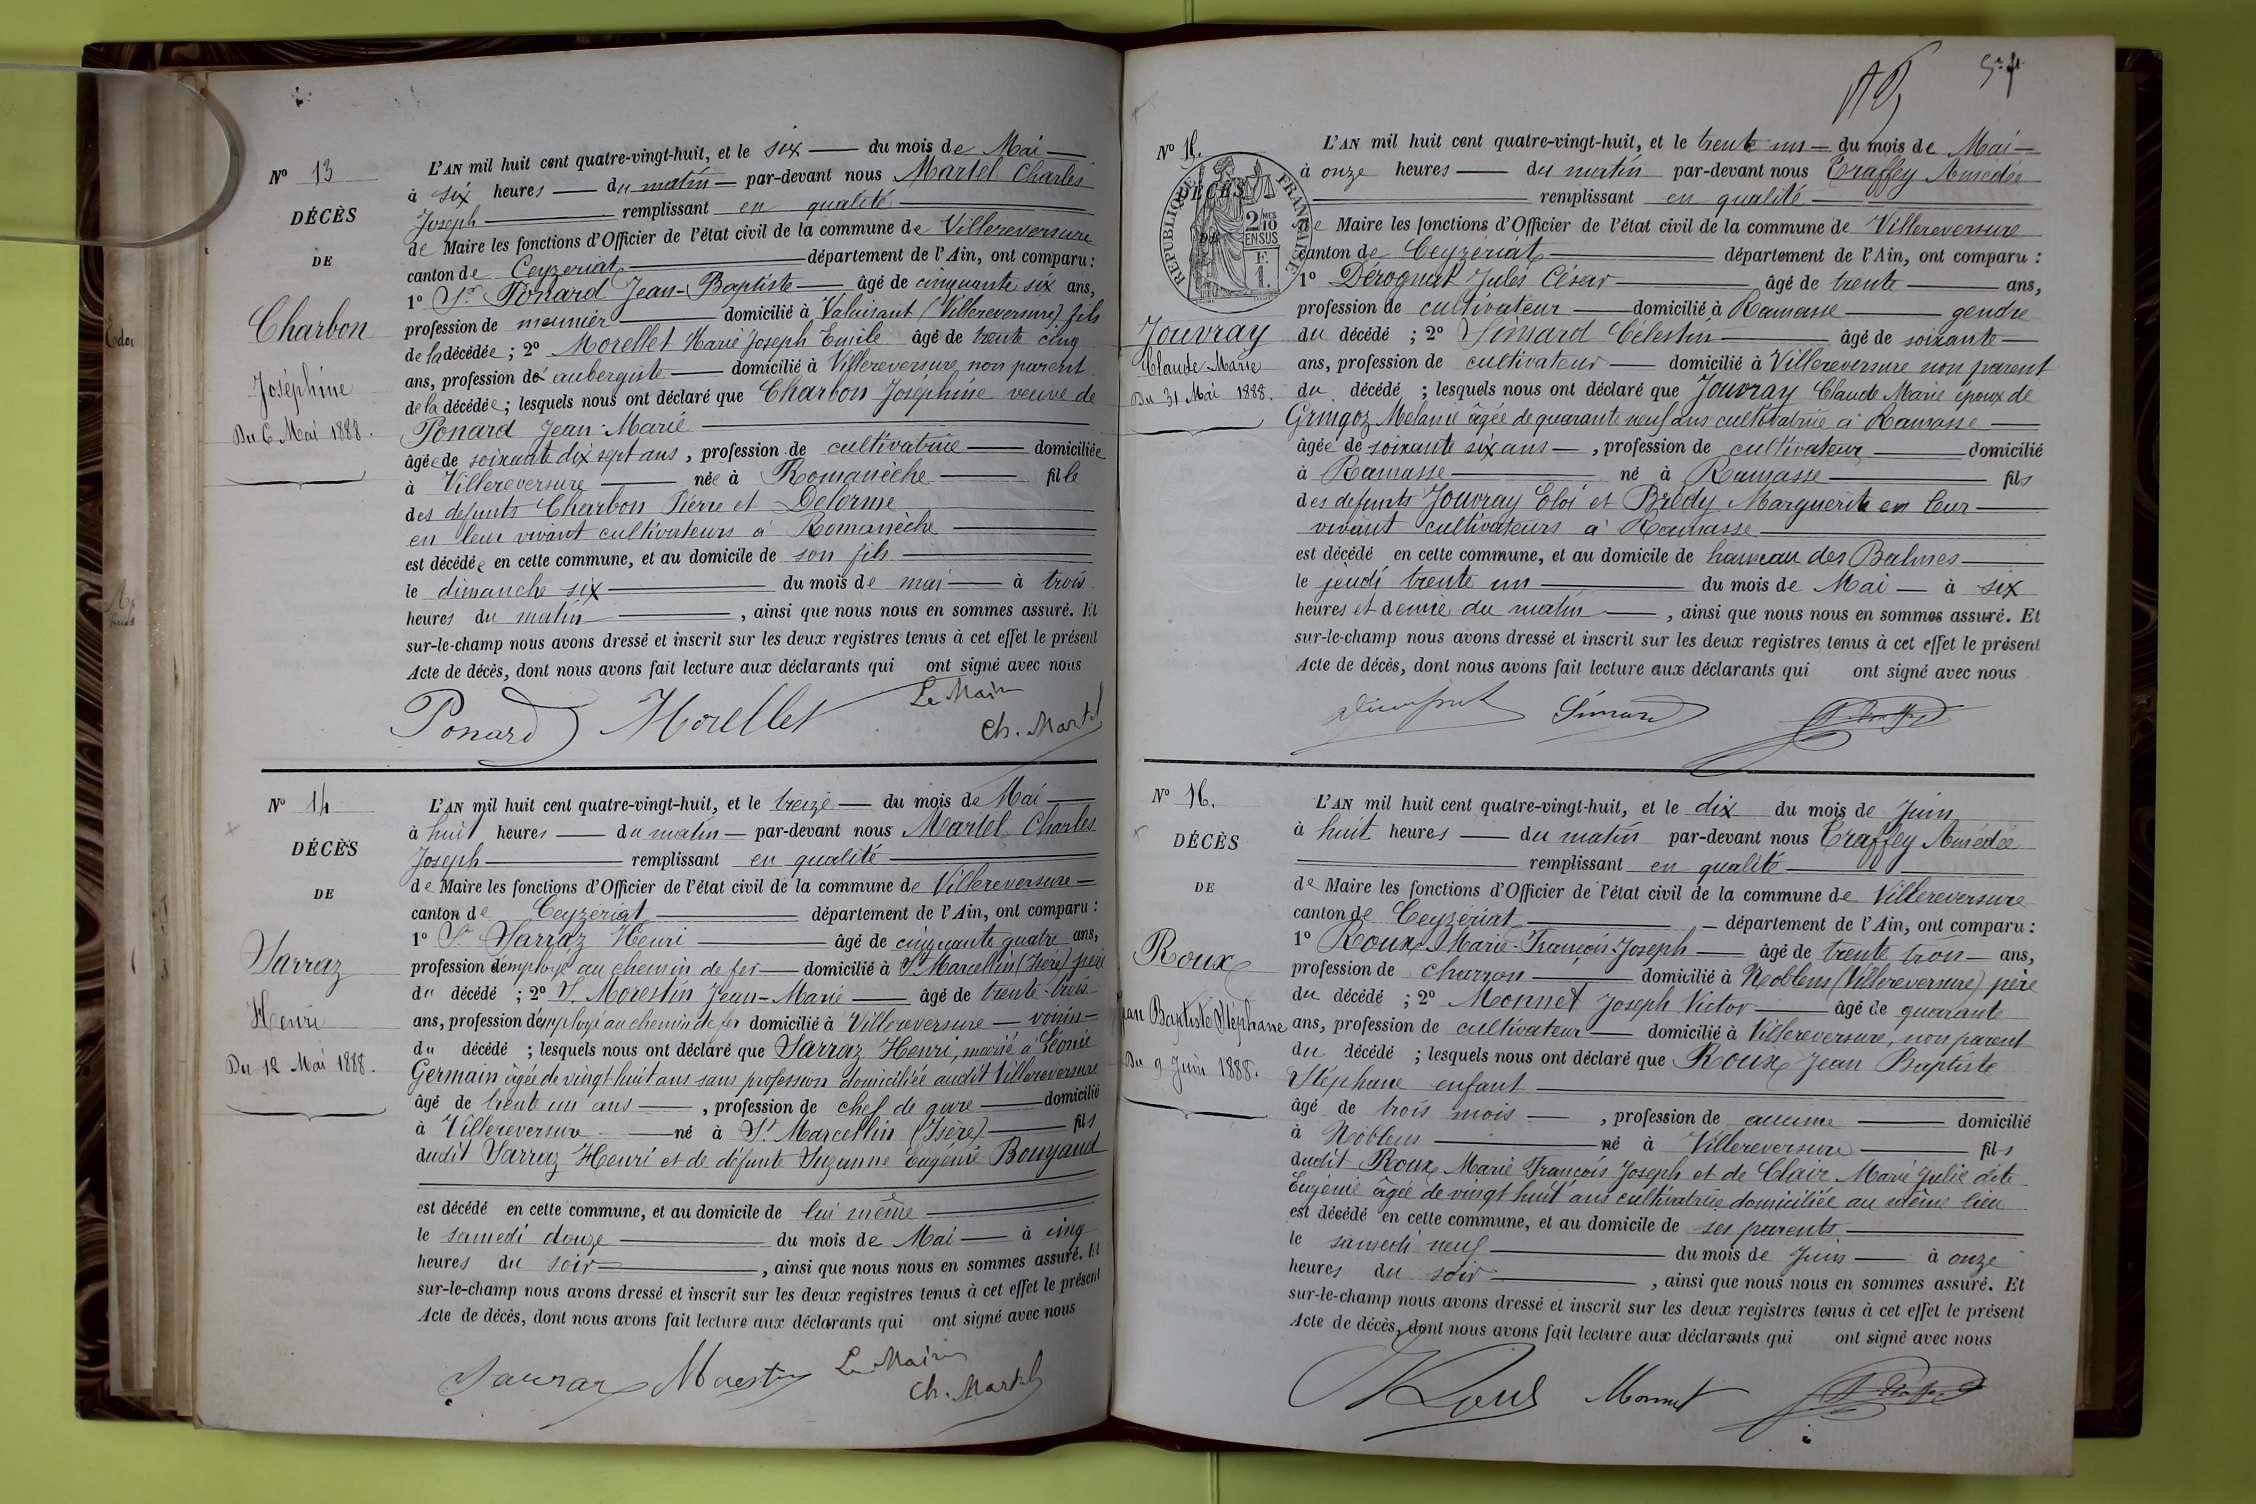 Nº 13
DÉCÈS
DE
Charbon
Joséphine
Du 6 Mai 1888.
L'AN mil huit cent quatre-vingt-huit, et le six du mois de Mai
à six heures du matin par-devant nous Martel Charles
Joseph remplissant en qualité
de Maire les fonctions d'Officier de l'état civil de la commune de Villereversure
canton de Ceyzeriat département de l'Ain, ont comparu :
1º Sr Ponard Jean-Baptiste âgé de cinquante six ans,
profession de meunier domicilié à Valuisant (Villereversure) fils
de la décédée ; 2º Morellet Marie Joseph Emile âgé de trente cinq
ans, profession d'aubergiste domicilié à Villereversure non parent
de la décédée ; lesquels nous ont déclaré que Charbon Joséphine veuve de
Ponard Jean-Marie
âgée de soixante dix sept ans, profession de cultivatrice domiciliée
à Villereversure née à Romanèche fille
des défunts Charbon Pierre et Delorme
en leur vivant cultivateurs à Romanèche
est décédée en cette commune, et au domicile de son fils
le dimanche six du mois de mai à trois
heures du matin, ainsi que nous nous en sommes assuré. Et
sur-le-champ nous avons dressé et inscrit sur les deux registres tenus à cet effet le présent
Acte de décès, dont nous avons fait lecture aux déclarants qui ont signé avec nous
Ponard Morellet Le Maire
Ch. Martel
Nº 14
DÉCÈS
DE
Sarraz
Henri
Du 12 Mai 1888.
L'AN mil huit cent quatre-vingt-huit, et le treize du mois de Mai
à huit heures du matin par-devant nous Martel Charles
Joseph remplissant en qualité
de Maire les fonctions d'Officier de l'état civil de la commune de Villereversure
canton de Ceyzériat département de l'Ain, ont comparu :
1º Sr Sarraz Henri âgé de cinquante quatre ans,
profession d'employé au chemin de fer domicilié à St Marcellin (Isère) père
du décédé ; 2º S. Morestin Jean-Marie âgé de trente-trois
ans, profession d'employé au chemin de fer domicilié à Villereversure voisin
du décédé ; lesquels nous ont déclaré que Sarraz Henri, marié à Léonie
Germain âgée de vingt huit ans sans profession domiciliée audit Villereversure
âgé de trente un ans, profession de chef de gare domicilié
à Villereversure né à St Marcellin (Isère) fils
dudit Sarraz Henri et de défunte Suzanne Eugénie Bouyaud
est décédé en cette commune, et au domicile de lui même
le samedi douze du mois de Mai à cinq
heures du soir, ainsi que nous nous en sommes assuré. Et
sur-le-champ nous avons dressé et inscrit sur les deux registres tenus à cet effet le présent
Acte de décès, dont nous avons fait lecture aux déclarants qui ont signé avec nous
Sarraz Morestin Le Maire
Ch. Martel
Nº 15.
DÉCÈS
DE
RÉPUBLIQUE FRANÇAISE
2/10 MES
EN SUS
F.
1.
Jouvray
Claude-Marie
Du 31 Mai 1888.
L'AN mil huit cent quatre-vingt-huit, et le trente un du mois de Mai
à onze heures du matin par-devant nous Traffey Amédée
remplissant en qualité
de Maire les fonctions d'Officier de l'état civil de la commune de Villereversure
canton de Ceyzériat département de l'Ain, ont comparu :
1º Dérognat Jules César âgé de trente ans,
profession de cultivateur domicilié à Ramasse gendre
du décédé ; 2º Simard Célestin âgé de soixante
ans, profession de cultivateur domicilié à Villereversure non parent
du décédé ; lesquels nous ont déclaré que Jouvray Claude Marie époux de
Gringoz Mélanie âgée de quarante neuf ans cultivatrice à Ramasse
âgée de soixante six ans, profession de cultivateur domicilié
à Ramasse né à Ramasse fils
des défunts Jouvray Eloi et Brédy Marguerite en leur
vivant cultivateurs à Ramasse
est décédé en cette commune, et au domicile de hameau des Balmes
le jeudi trente un du mois de Mai à six
heures et demie du matin, ainsi que nous nous en sommes assuré. Et
sur-le-champ nous avons dressé et inscrit sur les deux registres tenus à cet effet le présent
Acte de décès, dont nous avons fait lecture aux déclarants qui ont signé avec nous
Simard
Nº 16.
DÉCÈS
DE
Roux
Jean Baptiste Stéphane
Du 9 Juin 1888.
L'AN mil huit cent quatre-vingt-huit, et le dix du mois de Juin
à huit heures du matin par-devant nous Traffey Amédée
remplissant en qualité
de Maire les fonctions d'Officier de l'état civil de la commune de Villereversure
canton de Ceyzériat département de l'Ain, ont comparu :
1º Roux Marie-François-Joseph âgé de trente trois ans,
profession de charron domicilié à Noblens (Villereversure) père
du décédé ; 2º Monnet Joseph Victor âgé de quarante
ans, profession de cultivateur domicilié à Villereversure, non parent
du décédé ; lesquels nous ont déclaré que Roux Jean Baptiste
Stéphane enfant
âgé de trois mois, profession de aucune domicilié
à Noblens né à Villereversure fils
dudit Roux Marie François Joseph et de Clair Marie Julie dite
Eugénie âgée de vingt huit ans cultivatrice domiciliée au même lieu
est décédé en cette commune, et au domicile de ses parents
le samedi neuf du mois de Juin à onze
heures du soir, ainsi que nous nous en sommes assuré. Et
sur-le-champ nous avons dressé et inscrit sur les deux registres tenus à cet effet le présent
Acte de décès, dont nous avons fait lecture aux déclarants qui ont signé avec nous
Roux Monnet